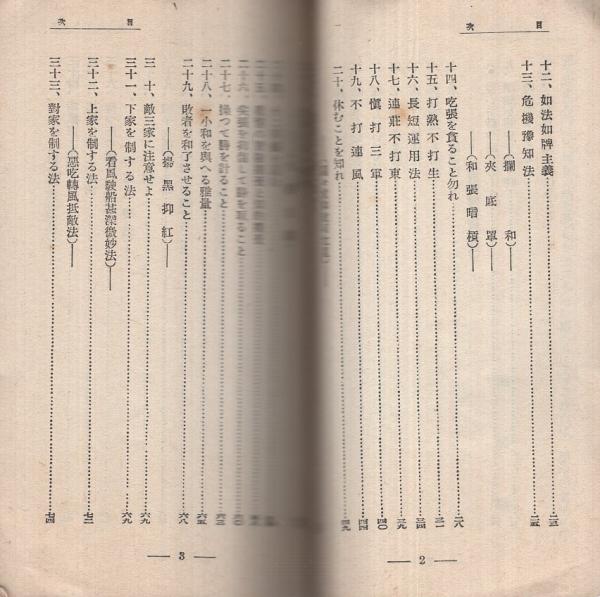 目次
十二、如法如牌主義……二五
十三、危機豫知法……二五
――(攔和)――
――(夾底單)――
――(和張暗槓)――
十四、吃張を貪ること勿れ……二八
十五、打熟不打生……三一
十六、長短運用法……三四
十七、連莊不打東……三九
十八、愼打三軍……四〇
十九、不打連風……四四
二十、休むことを知れ……四九
― 2 ―
目次
二十六、
して勝を取ること
二十七、操つて勝を計ること……六三
二十八、一小和を與へる雅量……六五
二十九、敗者を和了させること……六八
――(揚黑抑紅)――
三十、敵三家に注意せよ……六九
三十一、下家を制する法……六九
――(看風駛船甚深微妙法)――
三十二、上家を制する法……七二
――(惡吃轉風抵敵法)――
三十三、對家を制する法……七四
― 3 ―